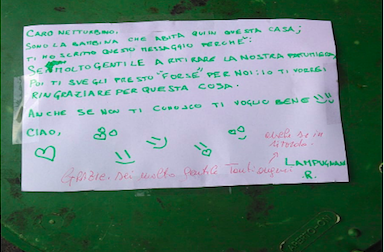 CARO NETTURBINO,
SONO LA BAMBINA CHE ABITA QUI IN QUESTA CASA;
TI HO SCRITTO QUESTO MESSAGGIO PERCHÉ:
SEI MOLTO GENTILE A RITIRARE LA NOSTRA PATTUMIERA,
POI TI SVEGLI PRESTO "FORSE" PER NOI: IO TI VORREI
RINGRAZIARE PER QUESTA COSA.
ANCHE SE NON TI CONOSCO TI VOGLIO BENE
CIAO,
anche se in
ritardo.
GRAZIE. Sei molto gentile Tanti auguri
LAMPUGNANI
R.